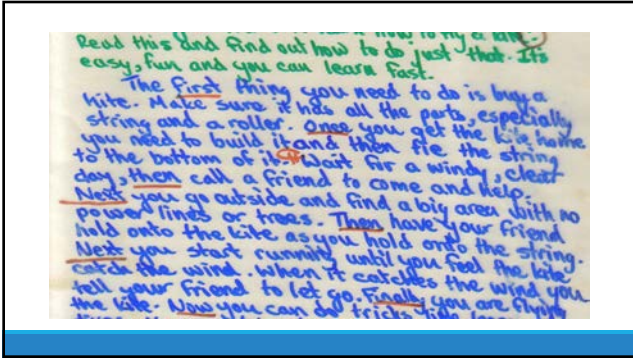 how to fly a kite.
Read this and find out how to do just that. It's
easy, fun and you can learn fast.
The first thing you need to do is buy a
kite. Make sure it has all the parts, especially
string and a roller. Once you get the kite home
you need to build it and then tie the string
to the bottom of it. Wait for a windy, clear
day, then call a friend to come and help.
Next you go outside and find a big area with no
power lines or trees. Then have your friend
hold onto the kite as you hold onto the string.
Next you start running until you feel the kite
catch the wind. When it catches the wind you
tell your friend to let go. Finally you are flying
the kite. Now you can do tricks like